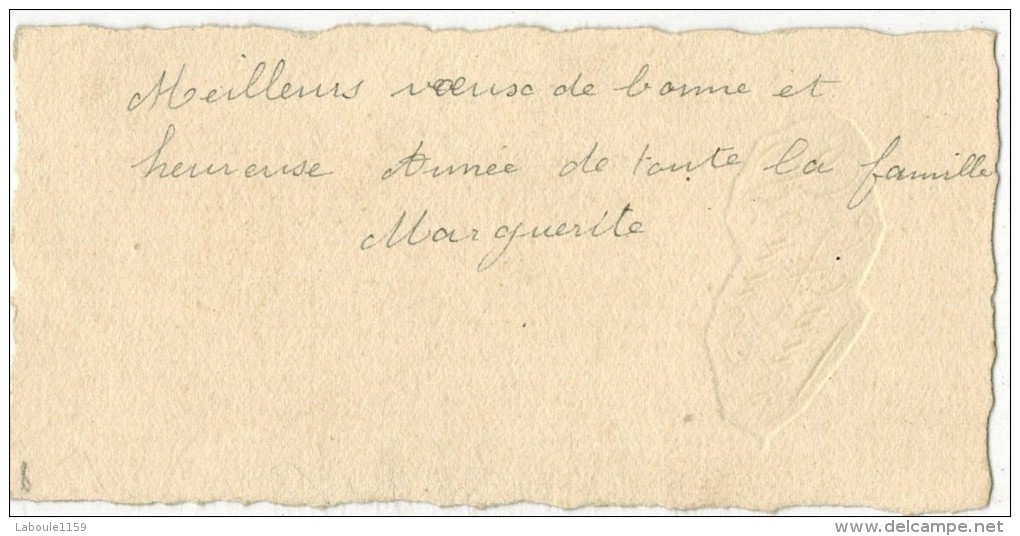 Meilleurs vœux de bonne et
heureuse Année de toute la famille
Marguerite
8
Laboule1159
www.delcampe.net